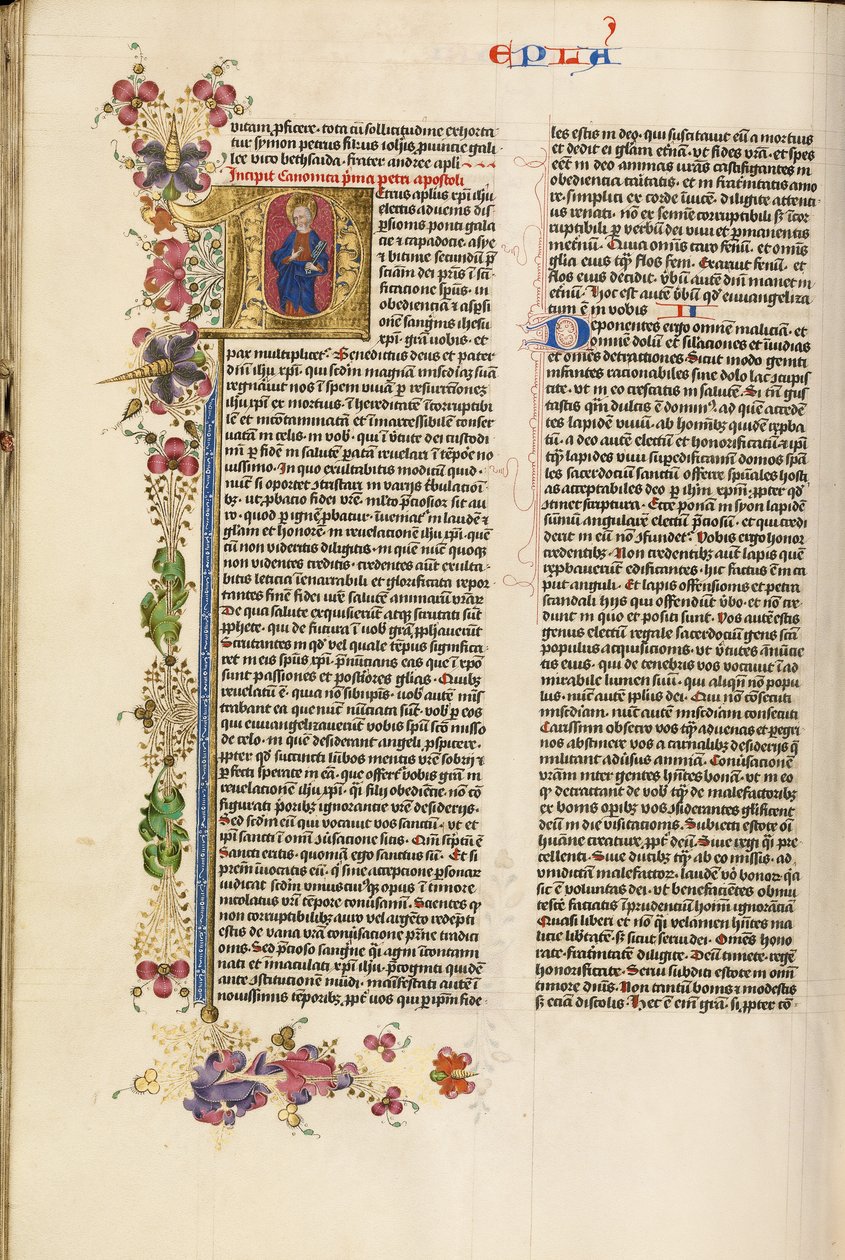 EPLA
vitam ꝓficere· tota cū sollicitudine exhorta
tur symon petrus filius ioh̄is ꝓuincie gali
lee vico bethsaida· frater andree apl̄i
Incipit Canonica p̄ma petri apostoli
Petrus apl̄us xp̄i ih̄u
electis aduenis dis
ꝑsionis ponti gala
cie ⁊ capadocie· asye
⁊ bitinie secundū p̄
sciam dei pr̄is ī sc̄i
ficatione sp̄us· in
obedienciā ⁊ asp̄si
onē sanguīs ihesu
xp̄i· grā uobis· et
pax multiplicet᷑· Benedictus deus et pater
dn̄i ih̄u xp̄i· qui scd̄m magnā misc̄diaʒ suā
regn̄auit nos ī spem viuā ꝑ resurrectioneʒ
ih̄u xp̄i ex mortuis· ī hereditatē īcorruptibi
lē et incōtaminatā et īmarcessibilē conser
uatā in celis· in vob̄· qui ī v̄tute dei custodi
mī ꝑ fidē in salutē ꝑatā reuelari ī tēpōe no
uissimo· In quo exultabitis modicū quid·
nūc si oportet ꝯtristari in varijs t̄bulatiōi
bꝫ· ut ꝓbatio fidei vr̄e· ml̄to p̄ciosior sit au
ro· quod ꝑ ignē ꝓbatur· īueniat᷑ in laudē ⁊
glām et honorē· in reuelatione ih̄u xp̄i· quē
cū non videritis diligitis· in quē nūc quoqꝫ
non videntes creditis· credentes aūt exulta
bitis leticia īenarrabili et glorificata repor
tantes finē fidei vr̄e salutē animarū vr̄aꝝ
De qua salute exquisierūt atqꝫ scrutati sūt
ꝓphete· qui de futura ī uob̄ grā ꝓphauerūt
Scrutantes in qd̄ vel quale tēpus significa
ret in eis sp̄us xp̄i· p̄nūcians eas que ī xp̄o
sunt passiones et post̄iores glīas· Quibꝫ
reuelatū ē· quia nō sibip̄is· uob̄ autē mīs
trabant ea que nūc nūciata sūt· vob̄ ꝑ eos
qui ewangelizauerūt vobis sp̄u sc̄o misso
de celo· in quē desiderant angeli ꝓspicere·
ꝓpter qd̄ succincti lūbos mentis vr̄e sobrij ⁊
ꝑfecti sperate in eā· que offert᷑ vobis grā in
reuelatione ih̄u xp̄i· q̄i filij obediētie· nō cō
figurati p̄oribꝫ ignorantie vr̄e desiderijs·
Sed scd̄m eū qui vocauit vos sanctū· vt et
ip̄i sancti ī omī ꝯūsatione sitis· Qm̄ sc̄ptū ē
Sancti eritis· quoniā ego sanctus sū· Et si
prēm īuocatis eū· q̄ sine acceptione ꝑsonaꝝ
iudicat scd̄m vniuscuiꝰqꝫ opus· ī timore
incolatus vr̄i tēpore conūsamī· Scientes q̄
non corruptibilibꝫ auro vel argēto redēpti
estis de vana vr̄a conūsatione pr̄ne tradici
onis· Sed p̄cioso sanguīe q̄i agni īcontami
nati et īmaculati xp̄i ih̄u· p̄cogniti quidē
ante ꝯstitutionē mūdi· maīfestati autē ī
nouissimis tēporibꝫ· ꝓpt̄ uos qui ꝑ ip̄m fide
les estis in deo· qui suscitauit eū a mortuis
et dedit ei glām et̄nā· vt fides vr̄a· et spes
eēt in deo animas ur̄as castificantes in
obedientia caritatis· et in frat̄nitatis amo
re· simplici ex corde īuicē· diligite attenti
us renati· nō ex semīe corruptibili sꝫ īcor
ruptibili ꝑ verbū dei viui et permanentis
inet̄nū· Quia omīs caro fenū· et omīs
glīa eius tq̄ȝ flos feni· Exaruit fenū· et
flos eius decidit· v̄bū autē dn̄i manet in
et̄nū· Hoc est autē v̄bū qd̄ ewangeliza
tum ē in vobis II
Deponentes ergo omnē maliciā· et
omnē dolū et sīlaciones et īuidias
et om̄es detractiones· Sicut modo geniti
infantes racionabiles sine dolo lac ꝯcupis
cite· vt in eo crescatis in salutē· Si tn̄ gus
tastis qm̄ dulcis ē domīꝰ· ad quē acceden
tes lapidē viuū· ab hom̄ibꝫ quidē reꝓba
tū· a deo autē electū et honorificatū· ⁊ ip̄i
tq̄ȝ lapides viui suꝑedificamī domos sp̄ua
les sacerdociū sanctū offerre sp̄uales hosti
as acceptabiles deo ꝑ ih̄m xp̄m· ꝓpter qd̄
ꝯtinet scriptura· Ecce ponā in syon lapidē
sūmū angularē electū p̄ciosū· et qui credi
derit in eū nō ꝯfundet᷑· Vobis ergo honor
credentibꝫ· Non credentibꝫ aūt lapis quē
reꝓbauerūt edificantes· hic factus ē in ca
put anguli· Et lapis offensionis et petra
scandali hijs qui offendūt v̄bo· et nō cre
dunt in quo et positi sunt· Vos autē estis
genus electū regale sacerdociū gens sc̄a
populus acquisicionis· vt v̄tutes ānūcie
tis eius· qui de tenebris vos vocauit ī ad
mirabile lumen suū· qui aliqn̄ nō popu
lus· nūc autē pp̄lus dei· Qui nō cōsecuti
misc̄diam· nūc autē misc̄diam consecuti
Carissimi obsecro vos tq̄ȝ aduenas et ꝑegri
nos abstinere vos a carnalibꝫ desiderijs q̄
militant adūsus animā· Conūsacionē
vr̄am inter gentes hn̄tes bonā· vt in eo
qꝫ detractant de vob̄ tq̄ȝ de malefactoribꝫ
ex bonis oꝑibꝫ vos ꝯsiderantes gl̄ificent
deū in die visitacionis· Subiecti estote oī
hūane creature· ꝓpt̄ deū· Siue regi q̄i pre
cellenti· Siue ducibꝫ tq̄ȝ ab eo missis· ad
vindictā malefactoꝝ· laudē v̄o bonoꝝ· q̄a
sic ē voluntas dei· vt benefaciētes obmu
tescē faciatis īprudentiū hom̄ ignoranciā
Quasi liberi et non q̄i velamen hn̄tes ma
licie lib̄tatē· sꝫ sicut serui dei· Om̄es hono
rate· frat̄nitatē diligite· Deū timete· regē
honorificate· Serui subditi estote in omī
timore dn̄is· Non tantū bonis ⁊ modestis
sꝫ eciā discolis· Hec ē enī grā· si ꝓpter cō